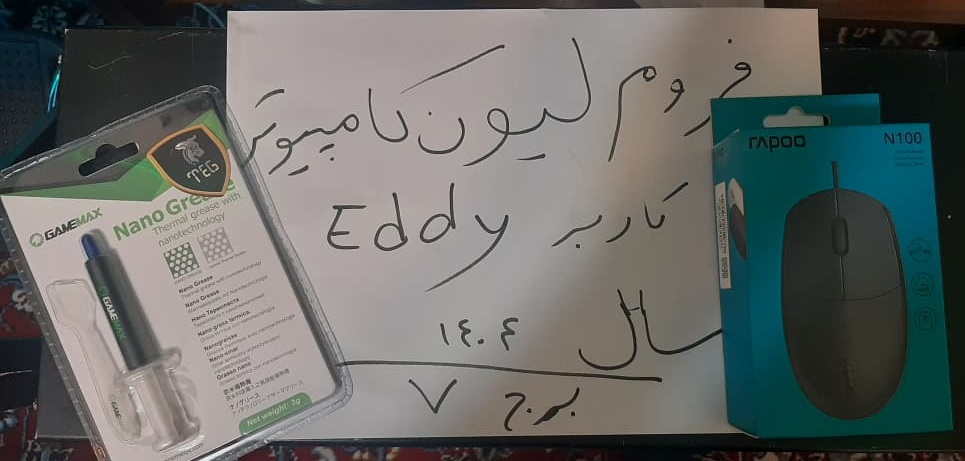 فروم لیون کامپیوتر
کاربر Eddy
سال ۱٤۰٤
برج ۷
TEG
GAMEMAX
Nano Grease
Thermal grease with
nanotechnology
Nano Grease
Thermal grease with nanotechnology
Nano Grease
Нано Термопаста
Nano grasa térmica
Nanograisse
Nano-smar
Graxa nano
ナノグリース
Net weight: 3g
GAMEMAX
GAMEMAX
rapoo
N100